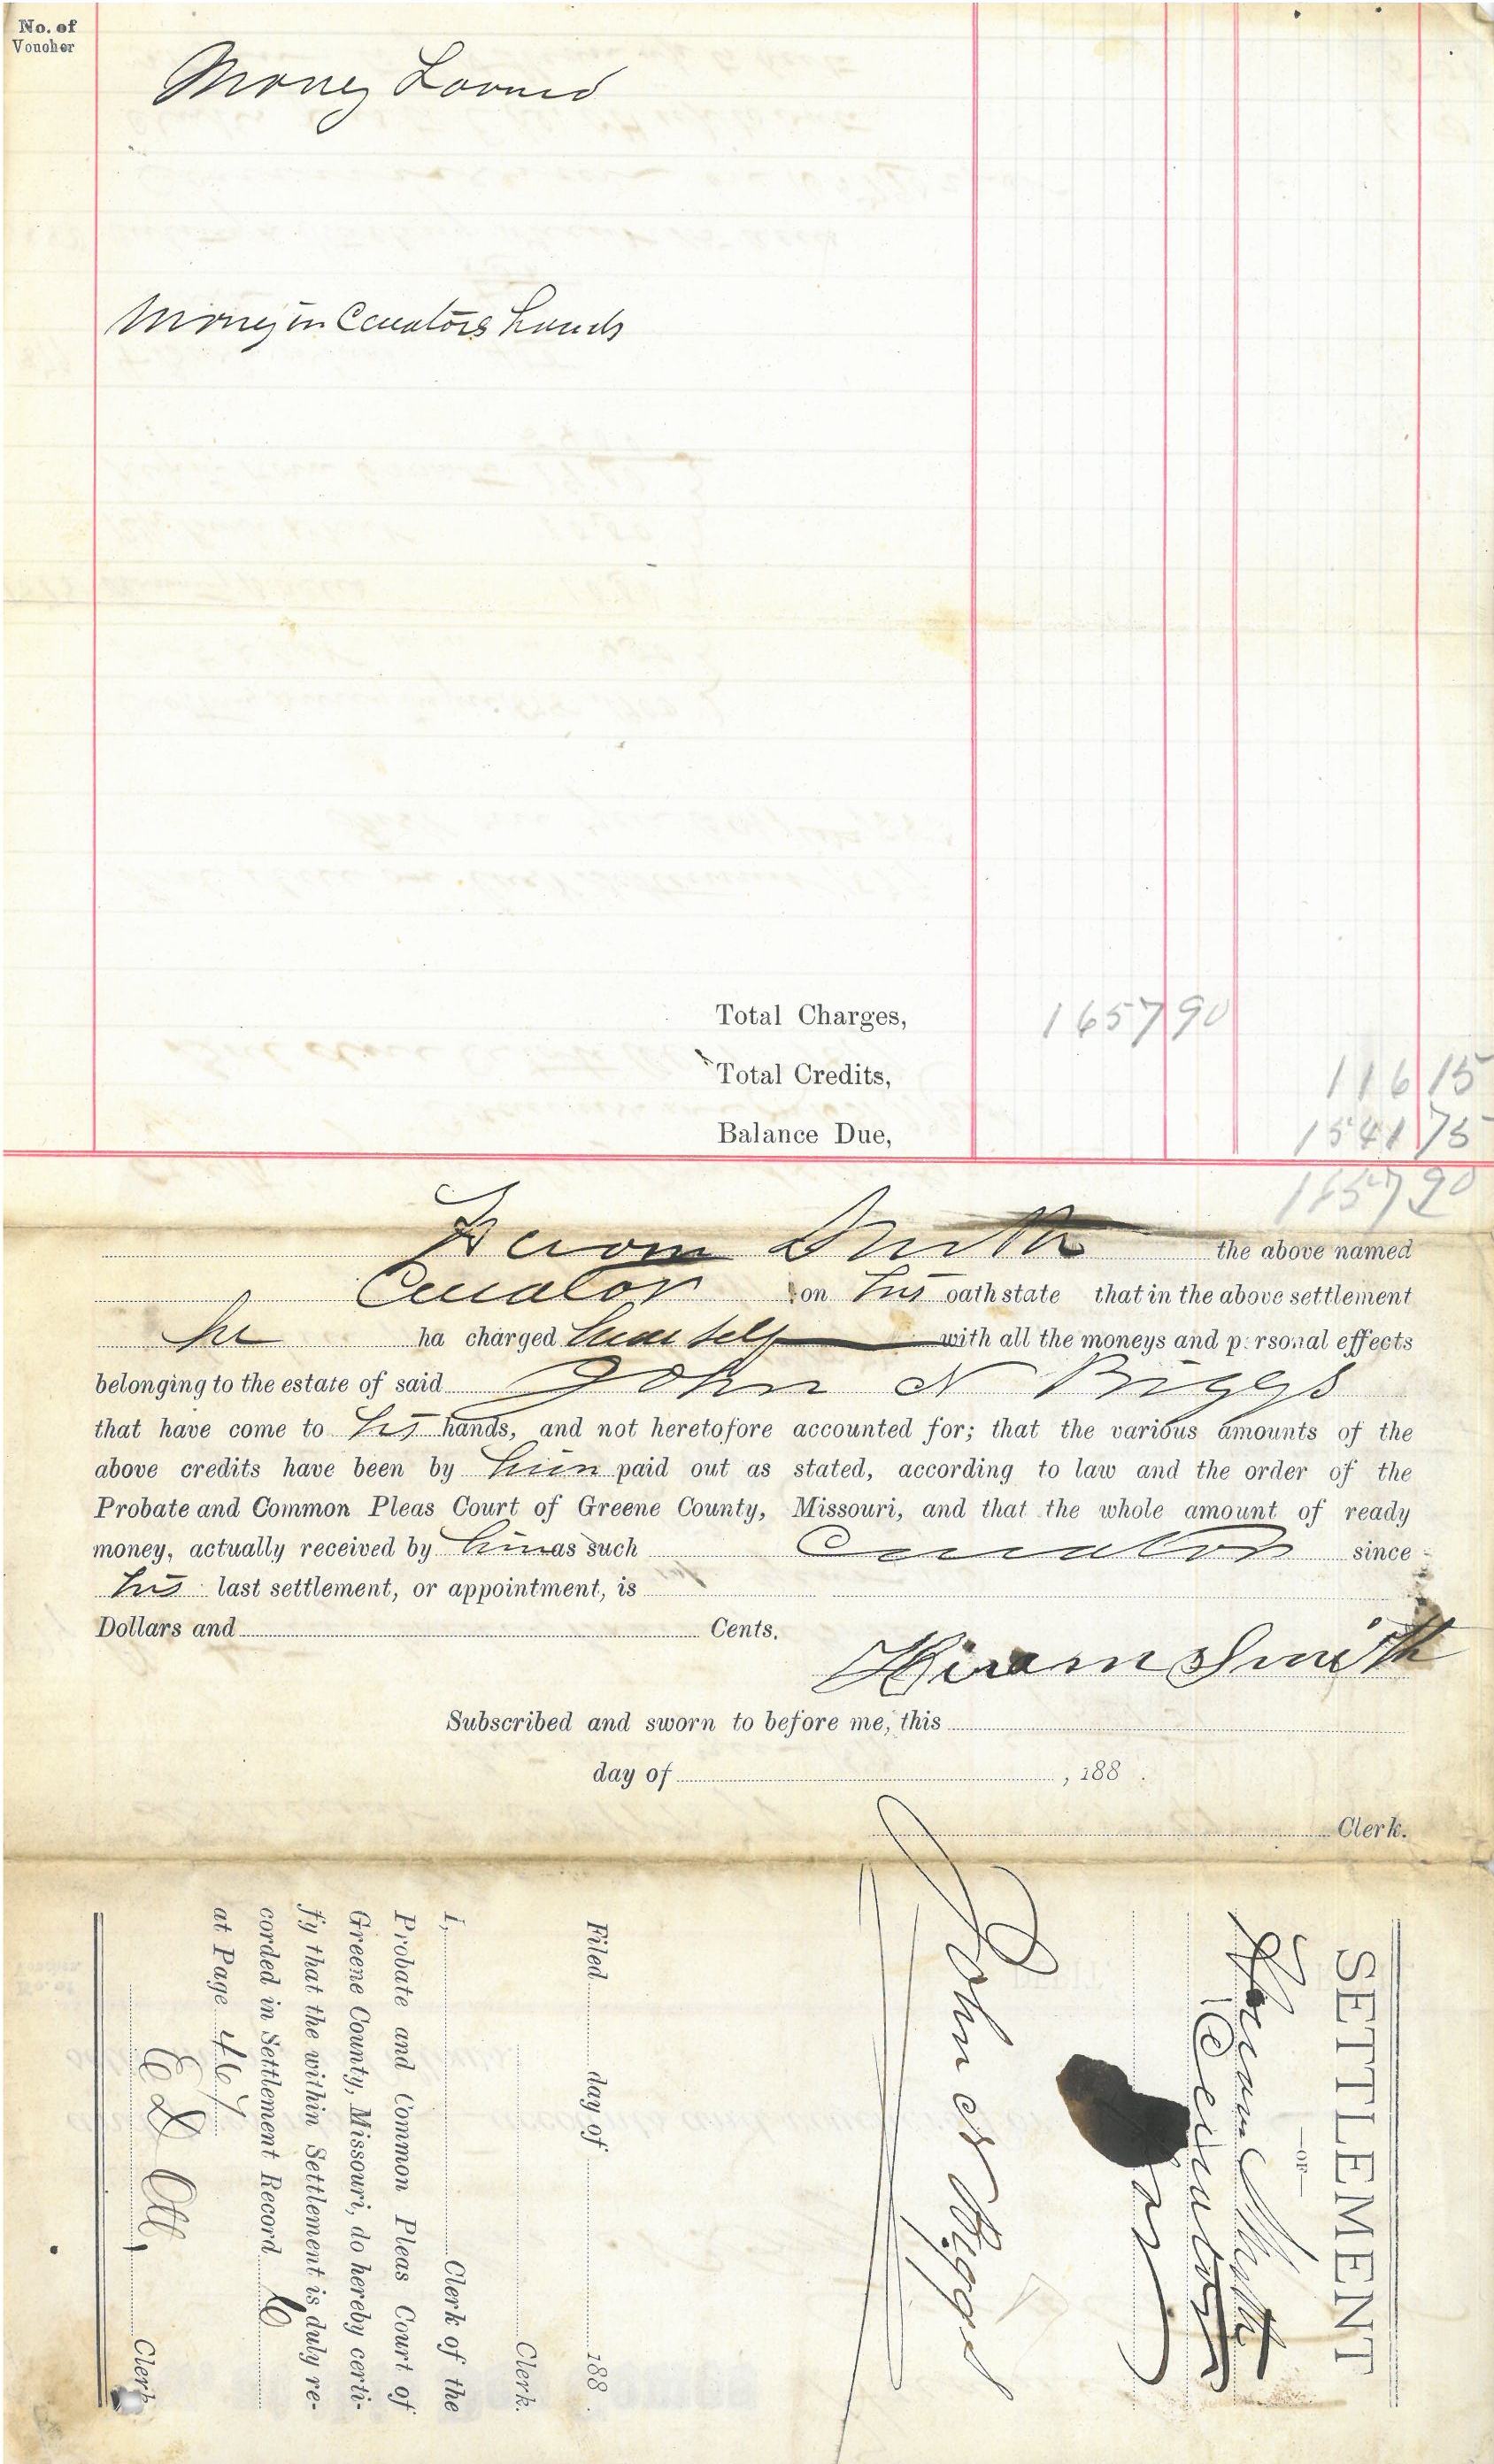 No. of
Voucher
Money Loaned
Money in Curators hands
Total Charges, 1657 90
Total Credits, 116 15
Balance Due, 1541 75
1657 90
Hiram Smith the above named
Curator on his oath state that in the above settlement
he ha charged himself with all the moneys and personal effects
belonging to the estate of said John N Briggs
that have come to his hands, and not heretofore accounted for; that the various amounts of the
above credits have been by him paid out as stated, according to law and the order of the
Probate and Common Pleas Court of Greene County, Missouri, and that the whole amount of ready
money, actually received by him as such Curator since
his last settlement, or appointment, is
Dollars and Cents.
Hiram Smith
Subscribed and sworn to before me, this
day of , 188 .
Clerk.
SETTLEMENT
—OF—
Hiram Smith
Curator
of
John N Briggs
Filed day of 188 .
Clerk.
I, Clerk of the
Probate and Common Pleas Court of
Greene County, Missouri, do hereby certi-
fy that the within Settlement is duly re-
corded in Settlement Record
at Page 467
E D Ott, Clerk